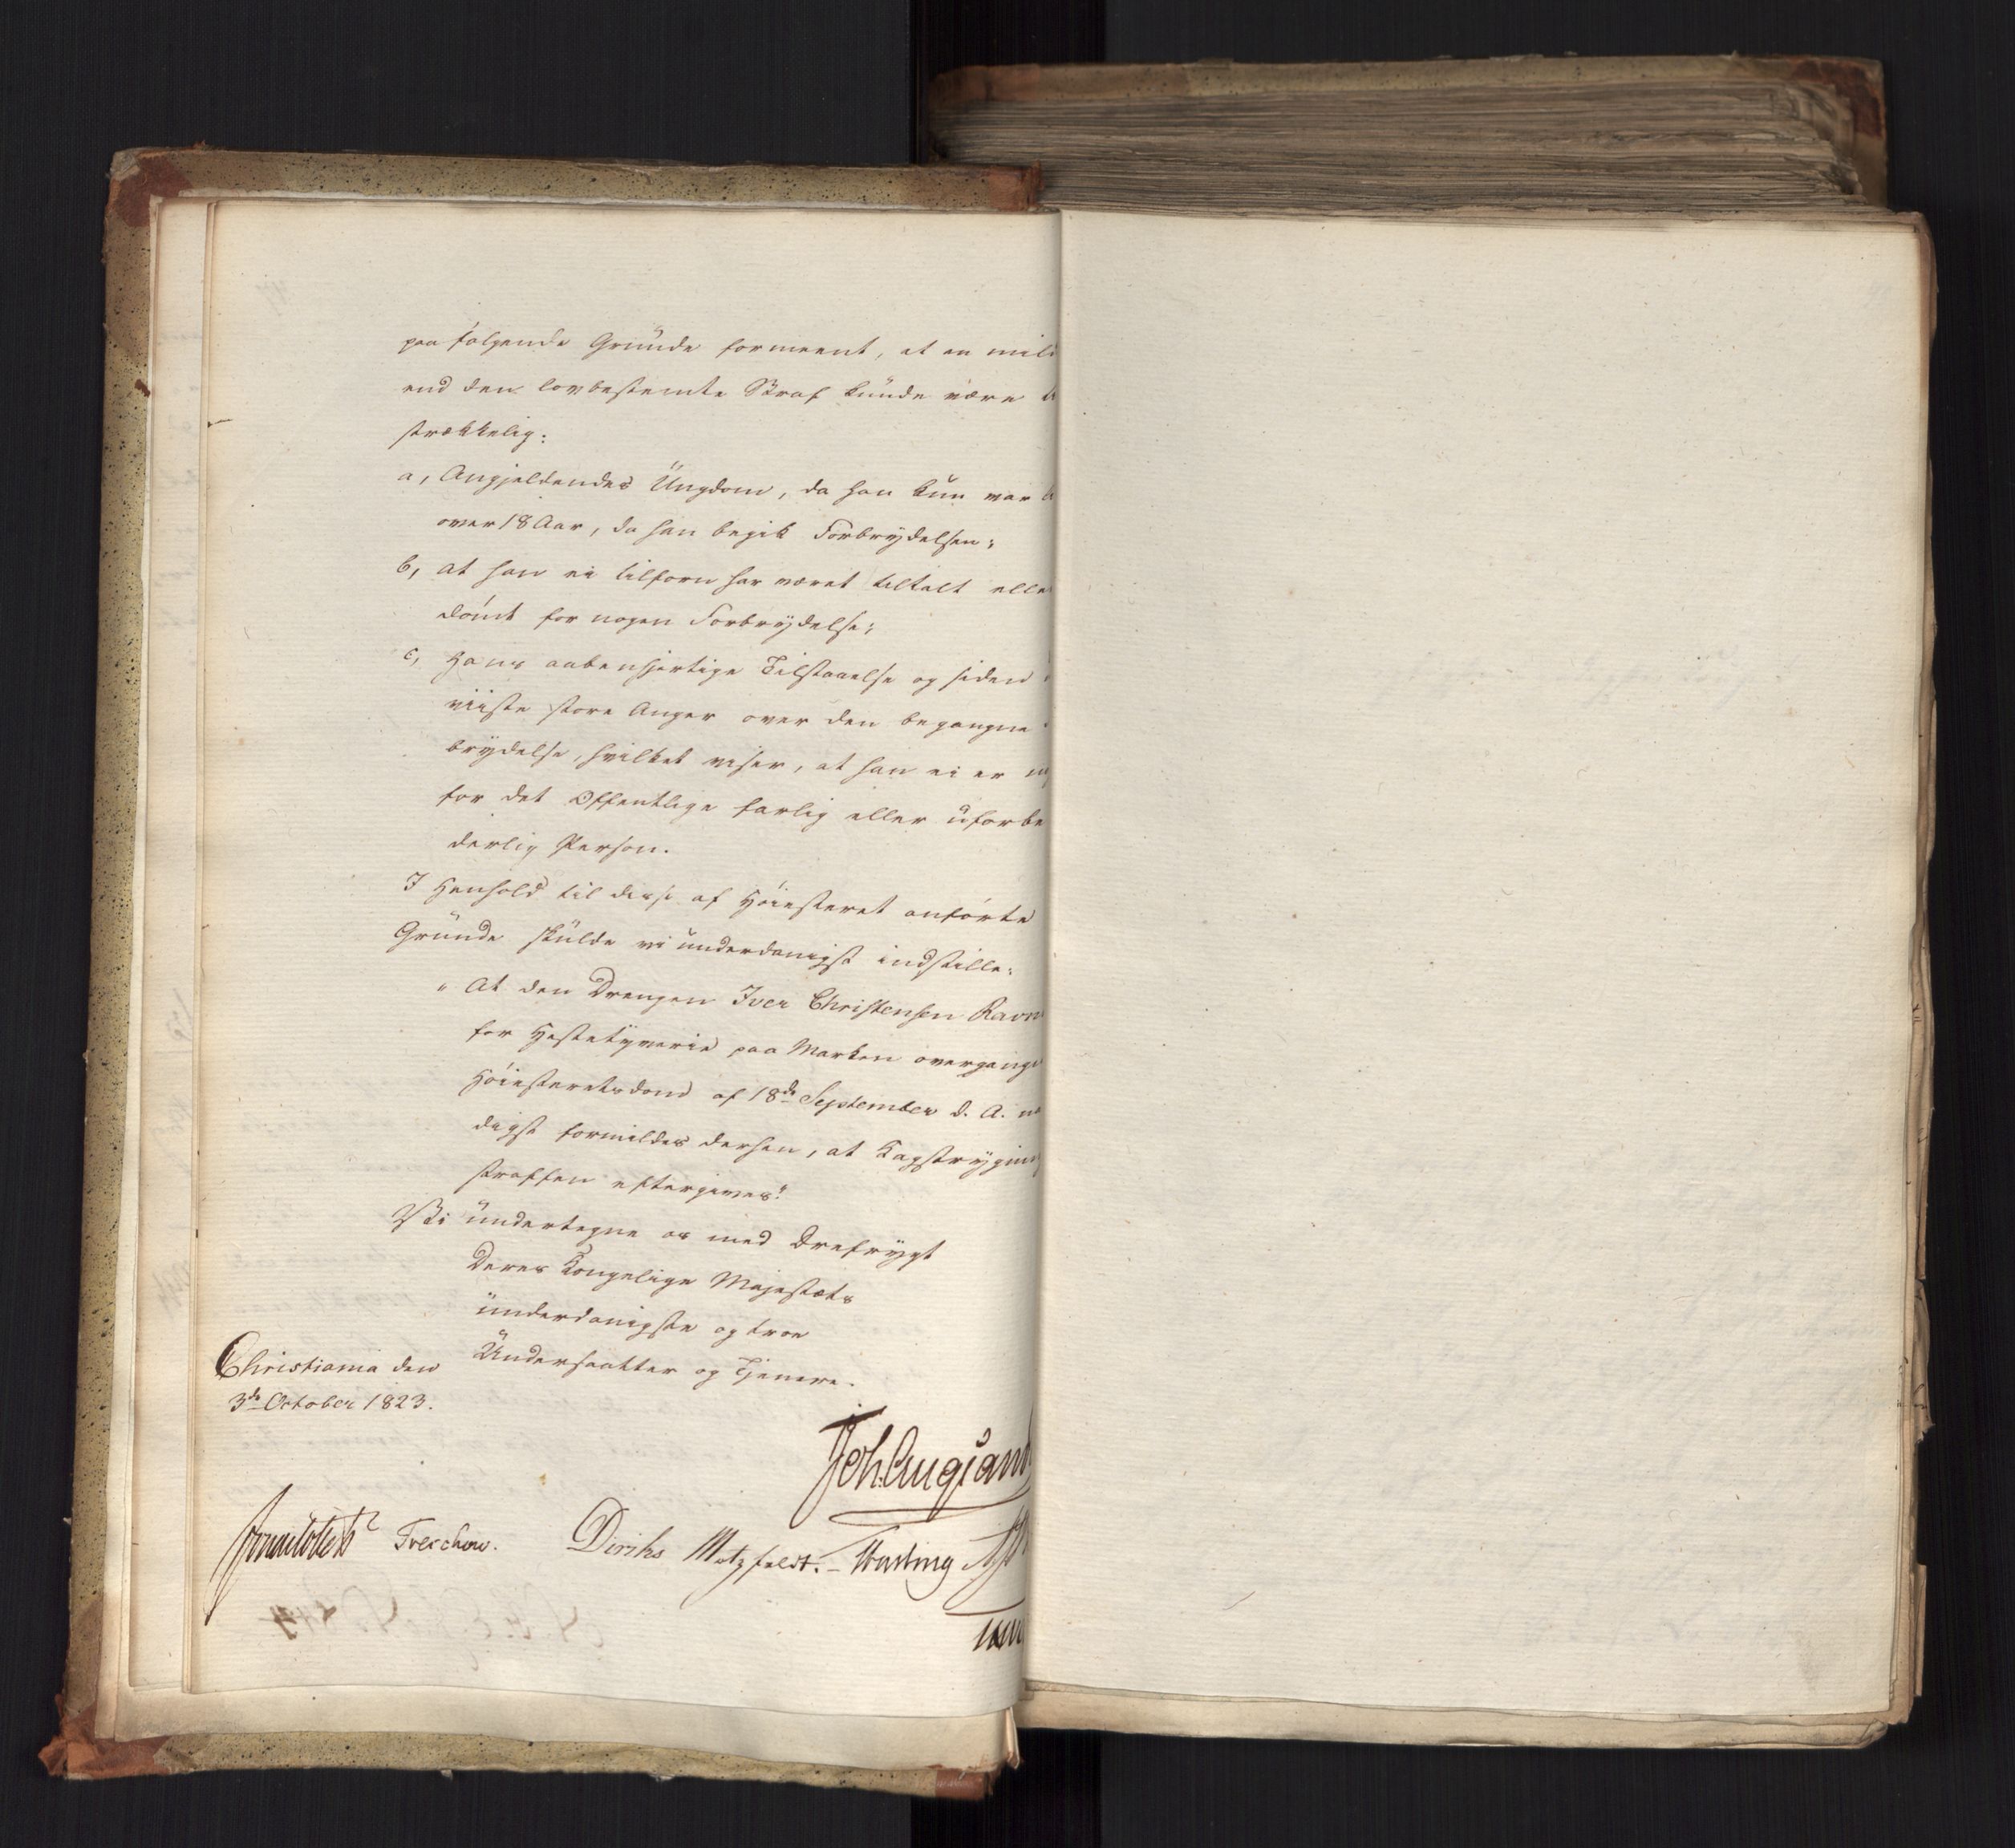 paa følgende Grunde formeent, at en mild
end den lovbestemte Straf kunde være
strækkelig:
a, Angjeldendes Ungdom, da han kun var
over 18 Aar, da han begik Forbrydelsen;
b, at han ei tilforn har været tiltalt elle
dømt for nogen Forbrydelse;
c, Hans aabenhjertige Tilstaaelse og siden
viiste store Anger over den begangne
brydelse, hvilket viser, at han ei er
for det Offentlige farlig eller uforbe
derlig Person.
I Henhold til disse af Høiesteret anførte
Grunde skulde vi underdanigst indstille:
"At den Drengen Iver Christensen Ravn
for Hestetyverie paa Marken overgangn
Høiesteretsdom af 18de September d. A. na
digst formildes derhen, at Kagstrygning
straffen eftergives."
Vi undertegne os med Ærefrygt
Deres Kongelige Majestæts
underdanigste og troe
Undersaatter og Tjenere.
Christiania den
3de October 1823.
Joh. Aug. Sand
Treschow. Diriks Motzfeldt. Fasting